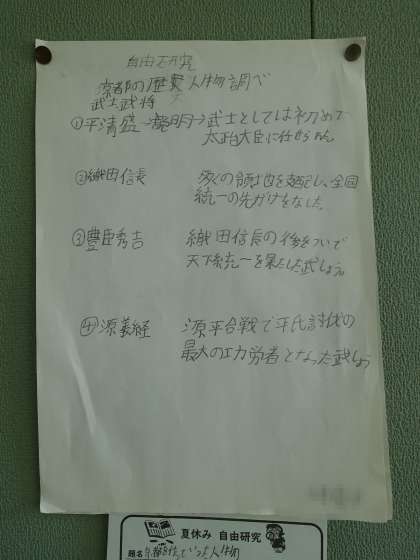 自由研究
京都の歴史人物調べ
武士武将
①平清盛→説明→武士としては初めて
太政大臣に任せられ
②織田信長 多くの領地を支配し、全国
統一の先がけをなした。
③豊臣秀吉 織田信長の後をついで
天下統一を果たした武しょう
④源義経 源平合戦で平氏討伐の
最大の功労者となった武しょう
夏休み 自由研究
題名
人物